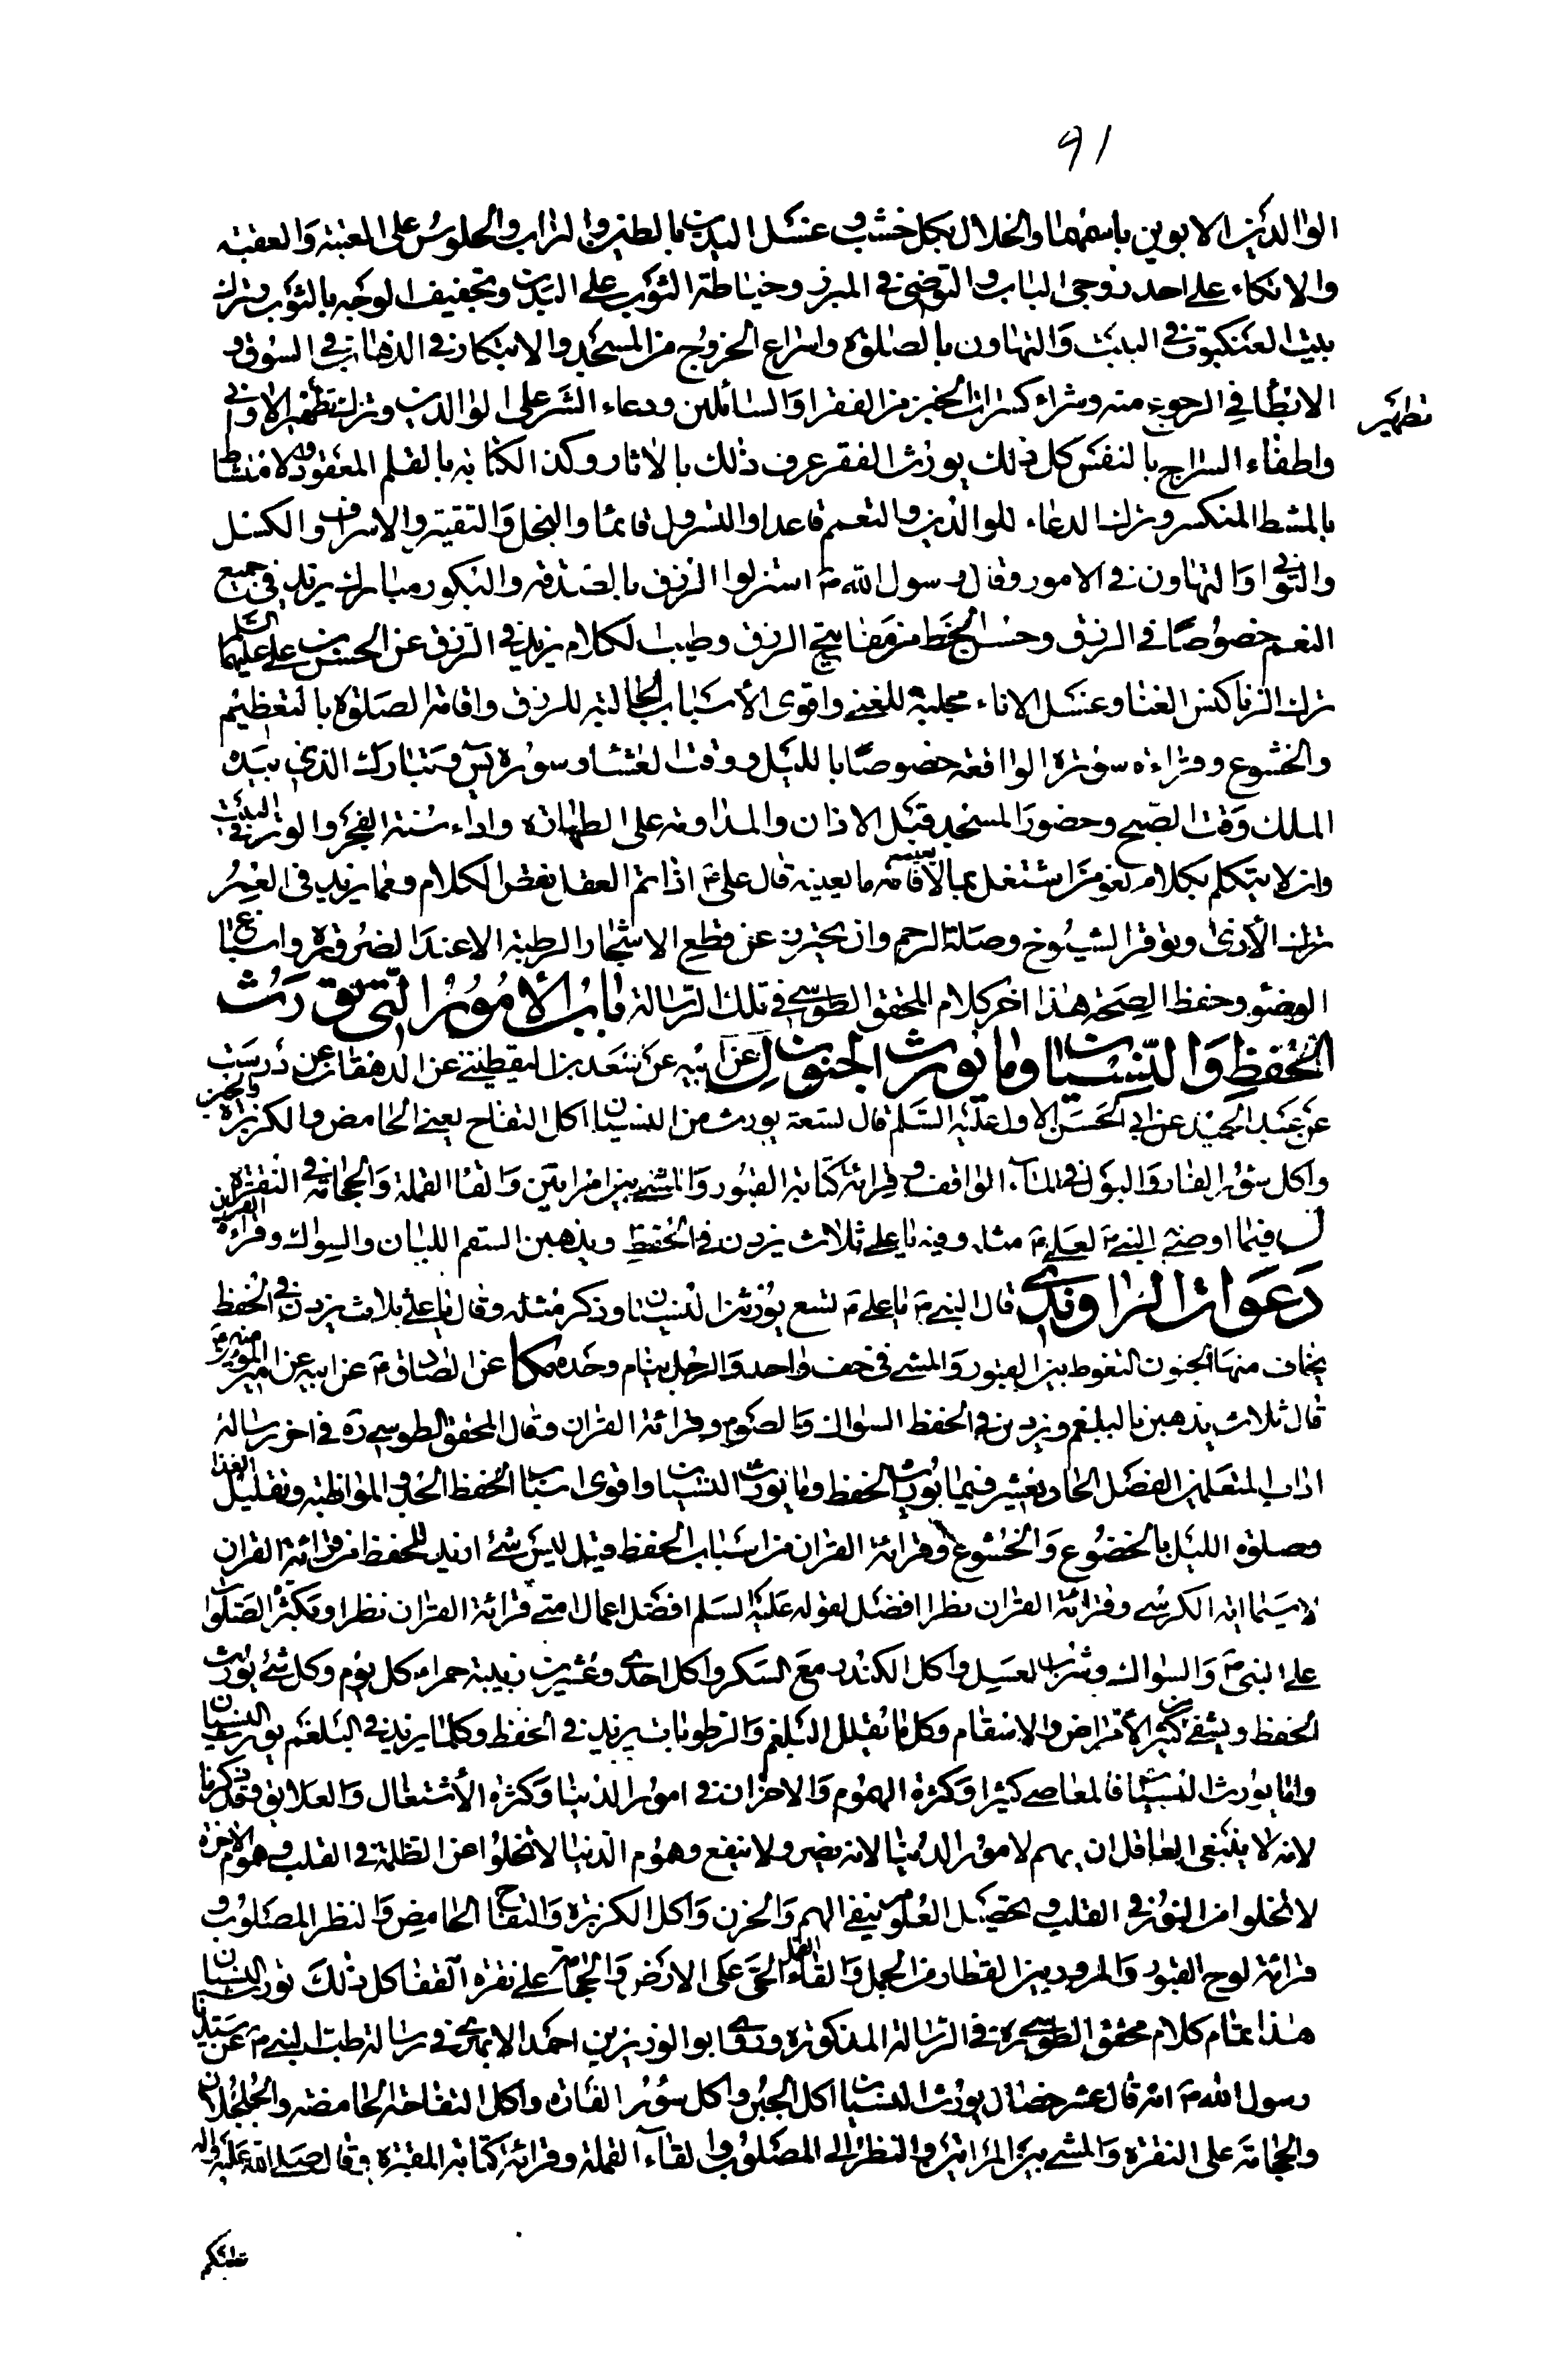 91
الوالدين الابوين باسمهما والخلال بكل خشب و غسل اليدين بالطين والتراب والجلوس على العتبة والعقبة
والاتكاء على احد زوجى الباب والتوضى فى المبرز وخياطة الثوب على البدن وتجفيف الوجه بالثوب وترك
بيت العنكبوت فى البيت والتهاون بالصلوة واسراع الخروج من المسجد والابتكار فى الذهاب فى السوق و
الابطا في الرجوع منه وشراء كسرات الخبز من الفقرا والسائلين ودعاء الشر على الوالدين وترك تطهير الاوانى
تطهير
واطفاء السراج بالنفس كل ذلك يورث الفقر عرف ذلك بالاثار وكذا الكتابة بالقلم المعقود والامتشاط
بالمشط المنكسر وترك الدعاء للوالدين والتعمم قاعدا والتسرول قائما والبخل والتقتير والاسراف والكسل
والتوانى والتهاون فى الامور وقال رسول الله ص استنزلوا الرزق بالصدقة والبكور مبارك يزيد فى جميع
النعم خصوصا فى الرزق وحسن الخط من مفاتيح الرزق وطيب الكلام يزيد فى الرزق عن الحسن بن على عليهما السلم
ترك الزنا وكنس الفنا وغسل الاناء مجلبة للغنى واقوى الأسباب الجالبة للرزق واقامة الصلوة بالتعظيم
والخشوع وقراءة سورة الواقعة خصوصا بالليل ووقت العشاء وسورة يس وتبارك الذى بيده
الملك وقت الصبح وحضور المسجد قبل الاذان والمداومة على الطهارة واداء سنة الفجر والوتر فى البيت
وان لا يتكلم بكلام لغو من اشتغل بما لا يعنيه فاته ما يعنيه قال على ع اذا تم العقل نقص الكلام ومما يزيد فى العمر
ترك الأذى وتوقير الشيوخ وصلة الرحم وان يحترز عن قطع الاشجار الرطبة الا عند الضرورة واسباغ
الوضوء وحفظ الصحة هذا اخر كلام المحقق الطوسى فى تلك الرسالة باب الأمور التى تورث
الحفظ والنسيان وما يورث الجنون ل عن ابيه عن سعد بن اليقطينى عن الدهقان عن درست
عن عبد الحميد عن ابى الحسن الاول عليه السلم قال تسعة يورثن النسيان اكل التفاح يعنى الحامض والكزبرة والجبن
واكل سؤر الفار والبول فى الماء الواقف و قراءة كتابة القبور والمشى بين امراتين والقا القملة والحجامة فى النقرة
ل فيما اوصى النبى ص لعلى ع مثله وفيه يا على ثلاث يزدن فى الحفظ ويذهبن السقم اللبان والسواك وقراءة القران
دعوات الراوندى قال النبى ص يا على ع تسع يورثن النسيان وذكر مثله وقال يا على ثلاث يزدن فى الحفظ
يخاف منها الجنون التغوط بين القبور والمشى فى خف واحد والرجل ينام وحده مكا عن الصادق ع عن ابيه عن امير المؤمنين ع
قال ثلاث يذهبن بالبلغم ويزدن فى الحفظ السواك والصوم وقرائة القران وقال المحقق الطوسى ره فى اخر رسالة
اداب المتعلمين الفصل الحاديعشر فيما يورث الحفظ وما يورث النسيان واقوى اسباب الحفظ الجد و المواظبة وتقليل الغذا
وصلوة الليل بالخضوع والخشوع وقرائة القران من اسباب الحفظ قيل ليس شئ ازيد للحفظ من قرائة القران
لا سيما اية الكرسى وقرائة القران نظرا افضل لقوله عليه السلم افضل اعمال امتى قرائة القران نظرا وتكثر الصلوات
على النبى ص والسواك وشرب العسل واكل الكندر مع السكر واكل احدى وعشرين زبيبة حمراء كل يوم وكل شئ يورث
الحفظ ويشفى من كثير الأمراض والاسقام وكل ما يقلل البلغم والرطوبات يزيد فى الحفظ وكلما يزيد فى البلغم يورث النسيان
واما يورث النسيان فالمعاصى كثيرا وكثرة الهموم والاحزان فى امور الدنيا وكثرة الأشتغال والعلايق وقد ذكرنا
لانه لا ينبغى للعاقل ان يهم لامور الدنيا لانه يضر ولا ينفع وهموم الدنيا لا تخلوا عن الظلمة فى القلب و هموم الاخرة
لا تخلوا من النور فى القلب و تحصيل العلوم ينفى الهم والحزن واكل الكزبرة والتفاح الحامض والنظر المصلوب و
قرائة لوح القبور والمرور بين القطار من الجمل والقاء القمل الحى على الارض والحجامة على نقرة القفا كل ذلك يورث النسيان
هذا تمام كلام محقق الطوسى ره فى الرسالة المذكورة وروى ابو الوزير بن احمد الابهرى فى رسالة طب النبى ص عن سيدنا
رسول الله ص انه قال عشر خصال يورث النسيان اكل الجبن واكل سؤر الفاره واكل التفاحة الحامضة والجلجلان
والحجامة على النقرة والمشى بين المراتين والنظر الى المصلوب والقاء القملة وقرائة كتابة المقبرة وقال صلى الله عليه واله
عليكم